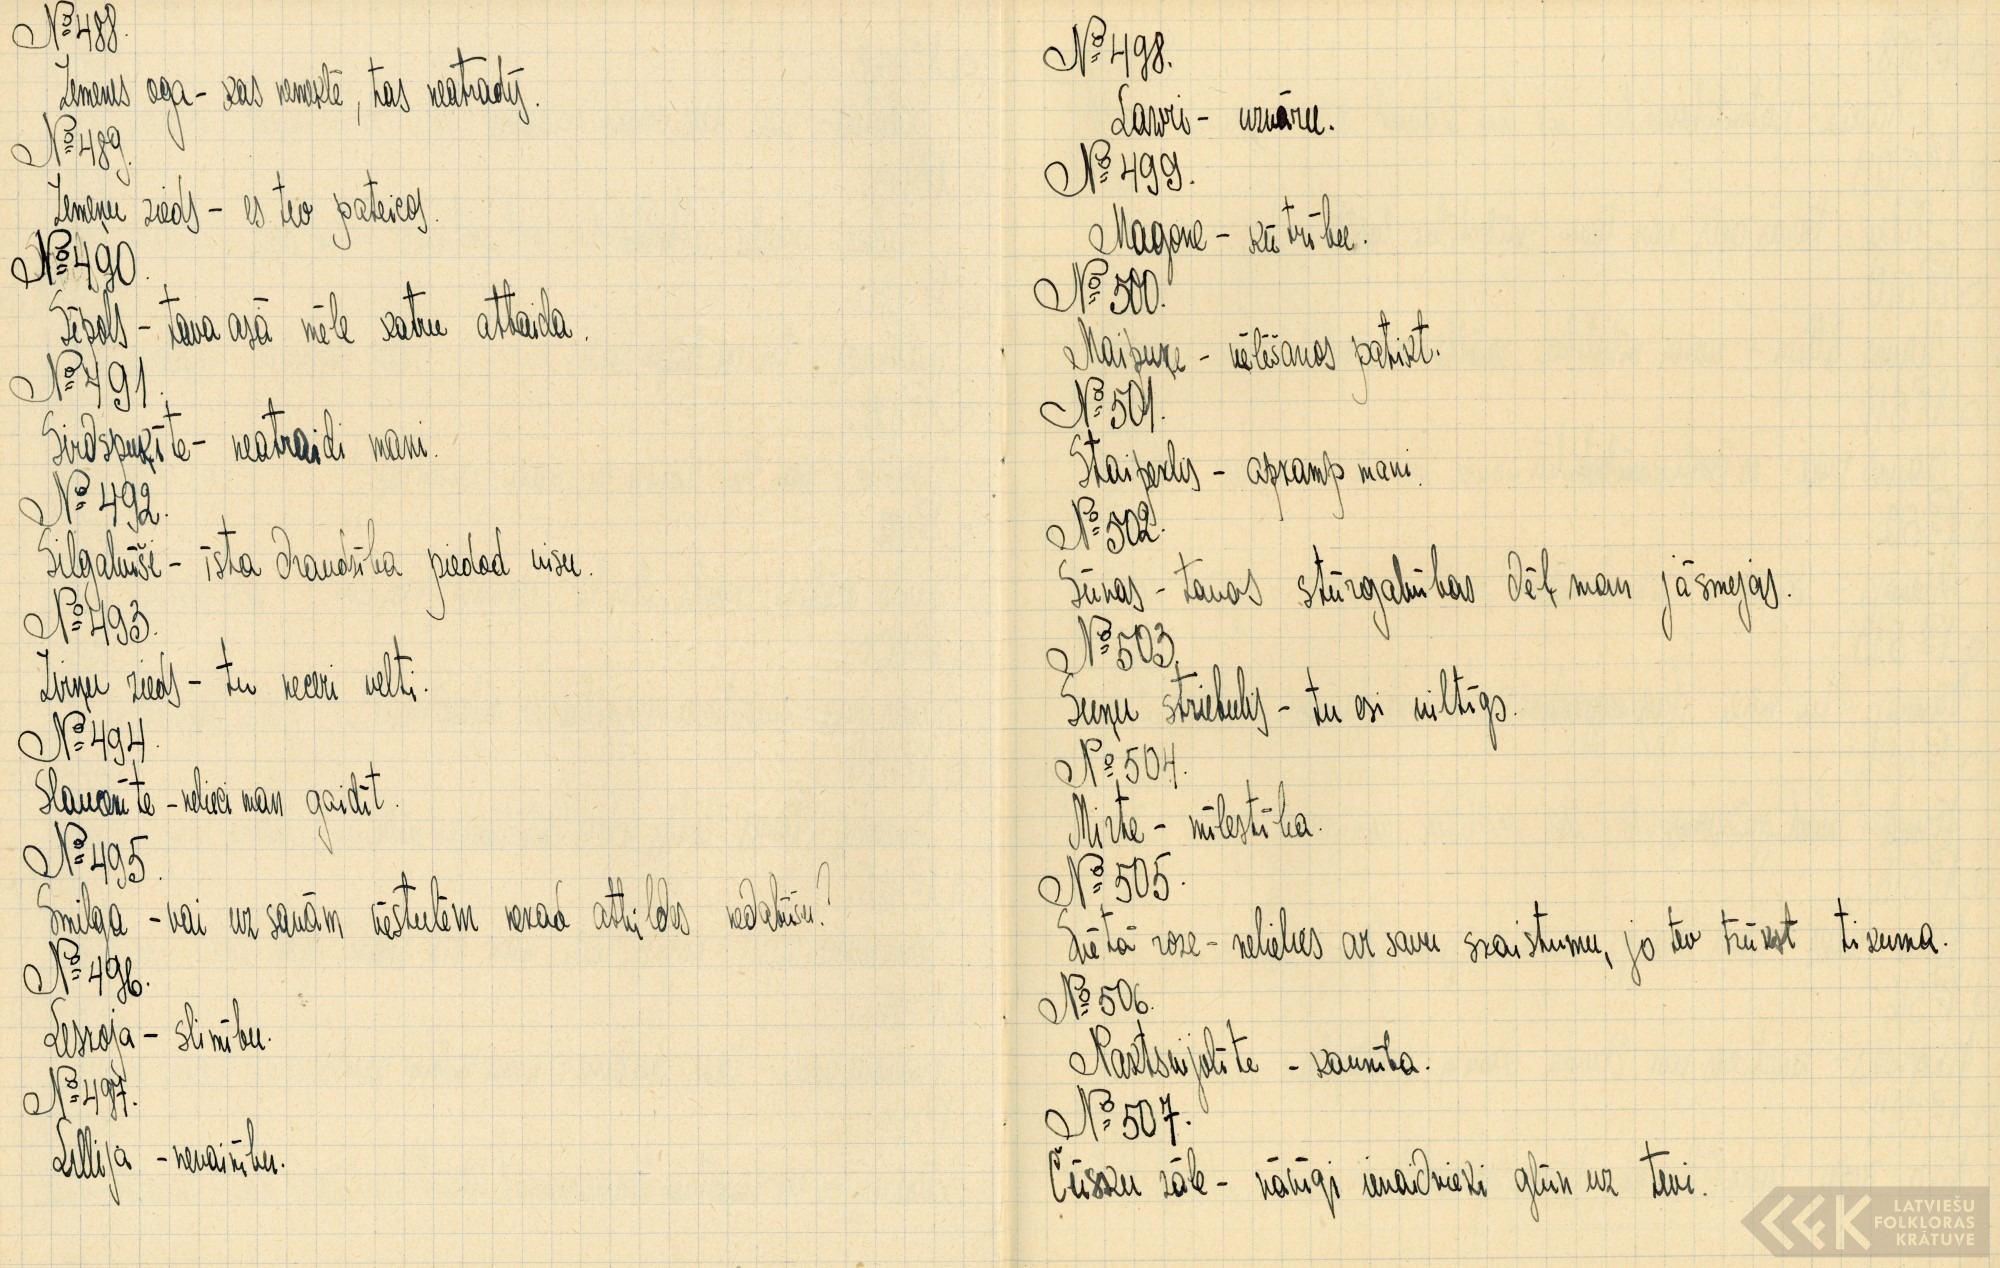 № 488.
Zemenes oga - kas nemeklē, tas neatradīs.
№ 489.
Zemeņu zieds - es tev pateicos.
№ 490.
Sīpols - tava asā mēle katru atbaida.
№ 491.
Sirdspuķīte - neatraidi mani.
№ 492.
Silgalvīši - īsta draudzība piedod visu.
№ 493.
Zirņu zieds - tu neceri velti.
№ 494.
Slaucenīte - nelieci man gaidīt.
№ 495.
Smilga - vai uz savām vēstulēm nekad atbildes nedabūšu?
№ 496.
Leskoja - slimību.
№ 497.
Lillija - nevainību.
№ 498.
Lauri - uzvāru.
№ 499.
Magone - kūtrību.
№ 500.
Maipuķe - vēlēšanos patikt.
№ 501.
Staipeklis - apkamp mani.
№ 502.
Sūnas - tavas stūrgalvības dēļ man jāsmejas.
№ 503.
Suņu striebulis - tu esi viltīgs.
№ 504.
Mirte - mīlestība.
№ 505.
Svētā roze - nelielies ar savu skaistumu, jo tev trūkst tikuma.
№ 506.
Naktsvijolīte - kaunība.
№ 507.
Čūsku zāle - nāvīgi ienaidnieki glūn uz tevi.
LATVIEŠU
FOLKLORAS
KRĀTUVE